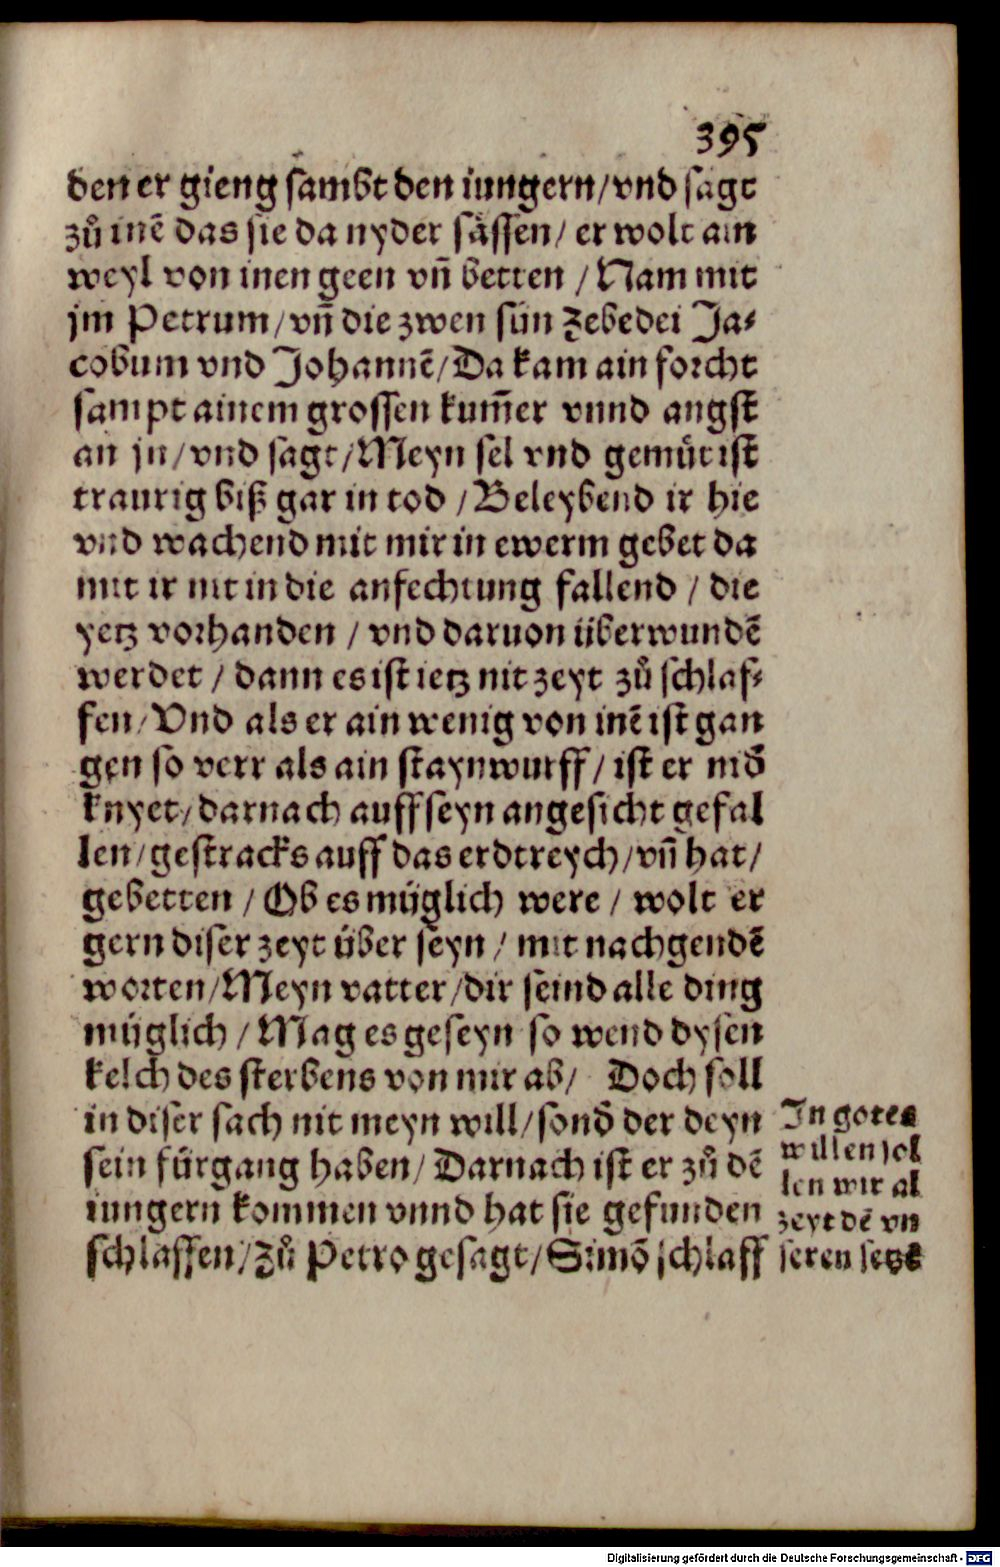 395
den er gieng sambt den iungern/vnd sagt
zů inē das sie da nyder sässen/ er wolt ain
weyl von inen geen vn̄ betten /Nam mit
jm Petrum/vn̄ die zwen sün Zebedei Ja⸗
cobum vnd Johannē/Da kam ain forcht
sampt ainem grossen kum̄er vnnd angst
an jn/vnd sagt/Meyn sel vnd gemüt ist
traurig biß gar in tod /Beleybend ir hie
vnd wachend mit mir in ewerm gebet da
mit ir nit in die anfechtung fallend / die
yetz vorhanden / vnd daruon überwundē
werdet / dann es ist ietz nit zeyt zů schlaf⸗
fen/Vnd als er ain wenig von inē ist gan
gen so verr als ain staynwurff/ ist er nid̄
knyet/darnach auff seyn angesicht gefal
len/gestracks auff das erdtreych/vn̄ hat/
gebetten /Ob es müglich were / wolt er
gern diser zeyt über seyn / mit nachgendē
worten/Meyn vatter/dir seind alle ding
müglich /Mag es geseyn so wend dysen
kelch des sterbens von mir ab/ Doch soll
in diser sach nit meyn will/sond̄ der deyn
sein fürgang haben/Darnach ist er zů dē
iungern kommen vnnd hat sie gefunden
schlaffen/Zů Petro gesagt/Simō schlaff
In gotes
willen sol
len wir al
zeyt dē vn
seren setzē
Digitalisierung gefördert durch die Deutsche Forschungsgemeinschaft - DFG